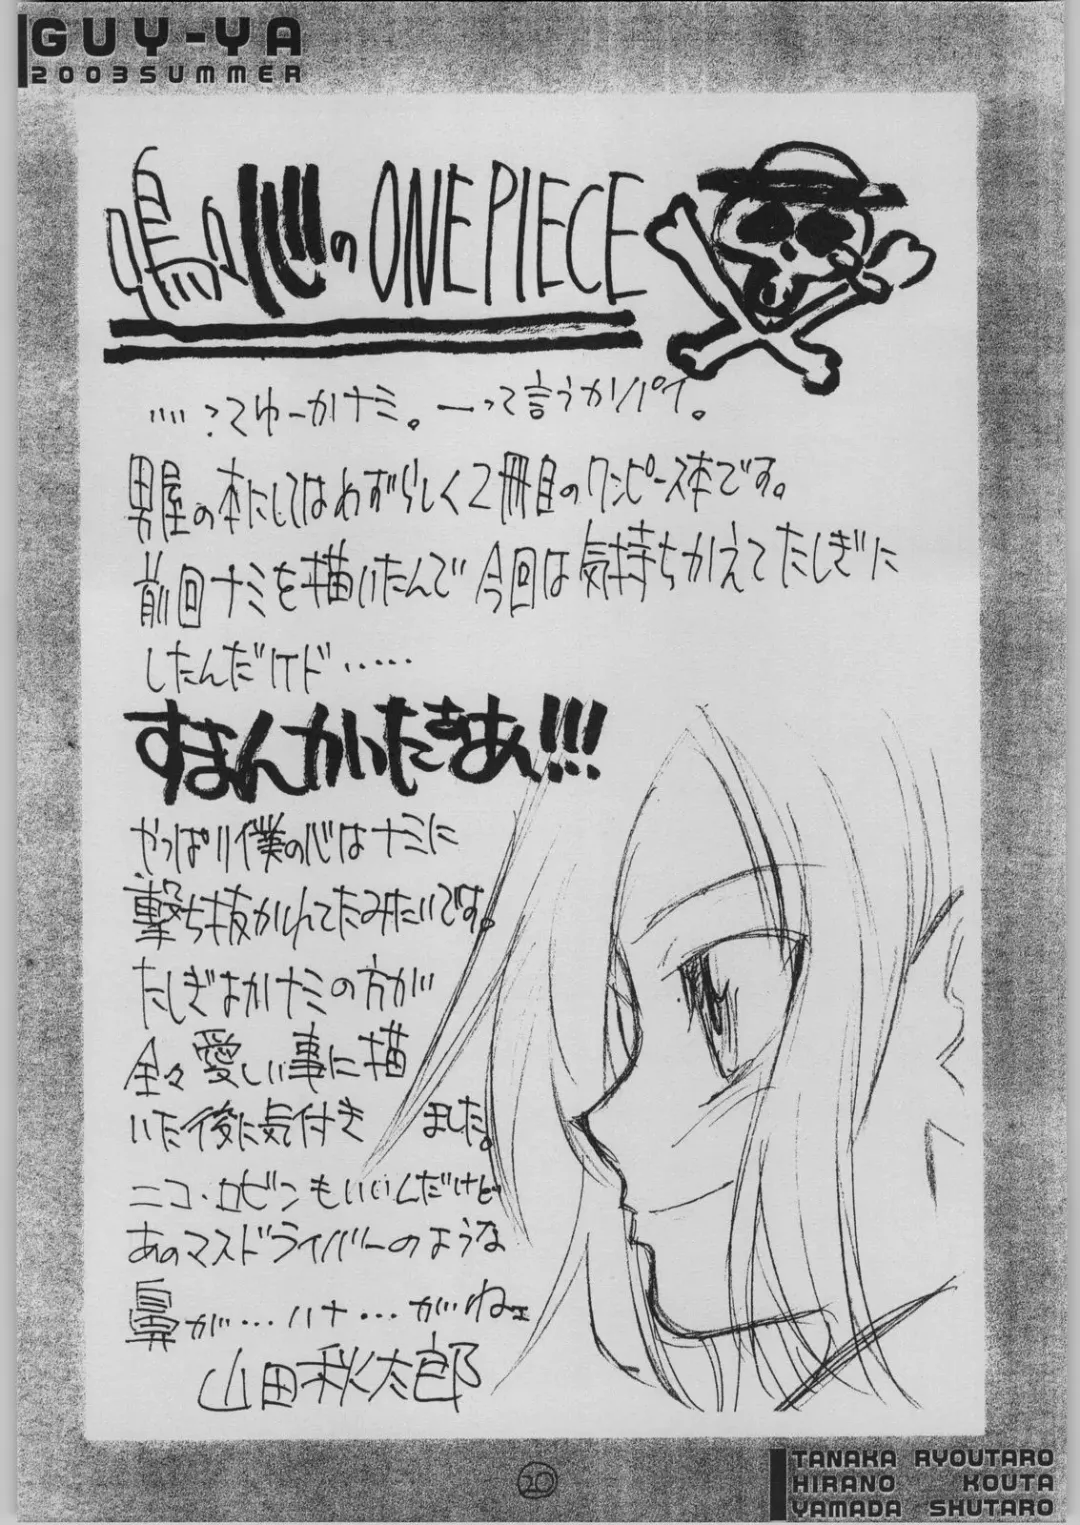 GUY-YA
2003SUMMER
鳴呼心のONE PIECE
・・・・？てゆーかナミ。―って言うかパイ。
男屋の本にしてはめずらしく2冊目のワンピース本です。
前回ナミを描いたんで今回は気持ちかえてたしぎに
したんだけド……
すまんかいたきあ!!!
やっぱり僕の心はナミに
撃ち抜かれてたみたいです。
たしぎよかナミの方が
全々愛しい事に描
いた後に気付き ました。
ニコ・ロビンもいいんだけど
あのマスドライバーのような
鼻が…ハナ…がねェ
山田秋太郎
20
TANAKA RYOUTARO
HIRANO KOUTA
YAMADA SHUTARO